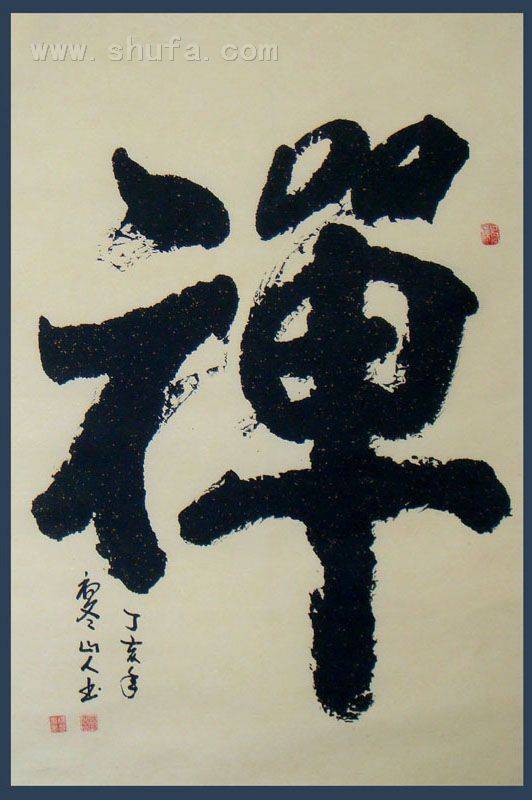 www.shufa.com
禪
丁亥年
山人书